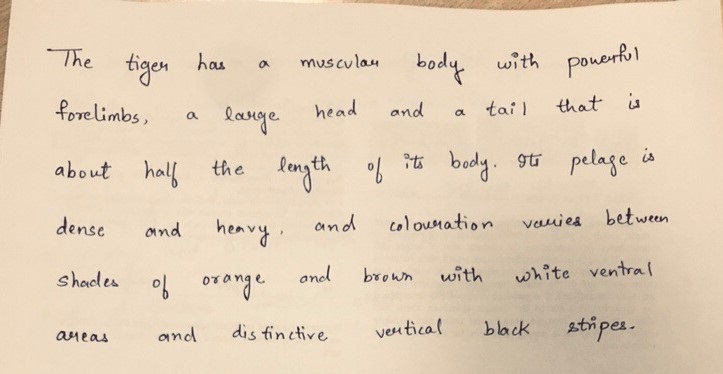 The tiger has a muscular body with powerful
forelimbs, a large head and a tail that is
about half the length of its body. Its pelage is
dense and heavy, and colouration varies between
shades of orange and brown with white ventral
areas and distinctive vertical black stripes.